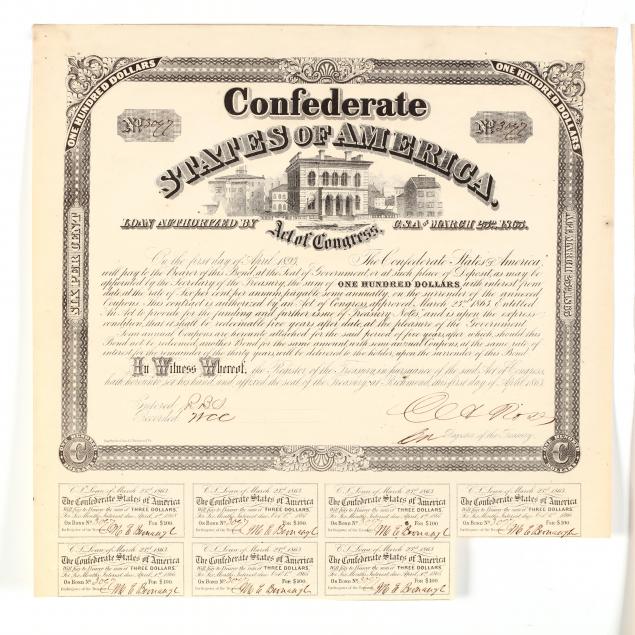 ONE HUNDRED DOLLARS
ONE HUNDRED DOLLARS
Confederate
No 3097
No 3097
STATES OF AMERICA,
LOAN AUTHORIZED BY
Act of Congress,
C.S.A. OF MARCH 23RD 1863.
SIX PER CENT
PER ANNUM
On the first day of April 1893, The Confederate States of America,
will pay to the Bearer of this Bond, at the Seat of Government, or at such place of Deposit, as may be
appointed by the Secretary of the Treasury, the sum of ONE HUNDRED DOLLARS with interest from
date at the rate of Six per cent per annum, payable semi annually, on the surrender of the annexed
Coupons. This Contract is authorized by an Act of Congress, approved March 23rd 1863 entitled
An Act to provide for the funding and further issue of Treasury Notes, and is upon the express
condition, that it shall be redeemable five years after date at the pleasure of the Government.
Semi annual coupons are hereunto attached for the said period of five years, after which, should this
Bond not be redeemed, another Bond for the same amount with semi annual Coupons, at the same rate of
interest for the remainder of the thirty years, will be delivered to the holder, upon the surrender of this Bond.
In Witness Whereof, the Register of the Treasury, in pursuance of the said Act of Congress,
hath hereunto set his hand and affixed the seal of the Treasury, at Richmond, this first day of April 1863.
Entered RBS
Recorded WCC
Register of the Treasury.
C.S. Loan of March 23rd 1863.
The Confederate States of America
Will pay to Bearer the sum of THREE DOLLARS,
On Bond No. 3097 For $100.
C.S. Loan of March 23rd 1863.
The Confederate States of America
Will pay to Bearer the sum of THREE DOLLARS,
On Bond No. 3097 For $100.
C.S. Loan of March 23rd 1863.
The Confederate States of America
Will pay to Bearer the sum of THREE DOLLARS,
On Bond No. 3097 For $100.
C.S. Loan of March 23rd 1863.
The Confederate States of America
Will pay to Bearer the sum of THREE DOLLARS,
On Bond No. 3097 For $100.
C.S. Loan of March 23rd 1863.
The Confederate States of America
Will pay to Bearer the sum of THREE DOLLARS,
For Six Months Interest due April 1st 1866
On Bond No. 3097 For $100.
C.S. Loan of March 23rd 1863.
The Confederate States of America
Will pay to Bearer the sum of THREE DOLLARS,
On Bond No. 3097 For $100.
C.S. Loan of March 23rd 1863.
The Confederate States of America
Will pay to Bearer the sum of THREE DOLLARS,
On Bond No. 3097 For $100.